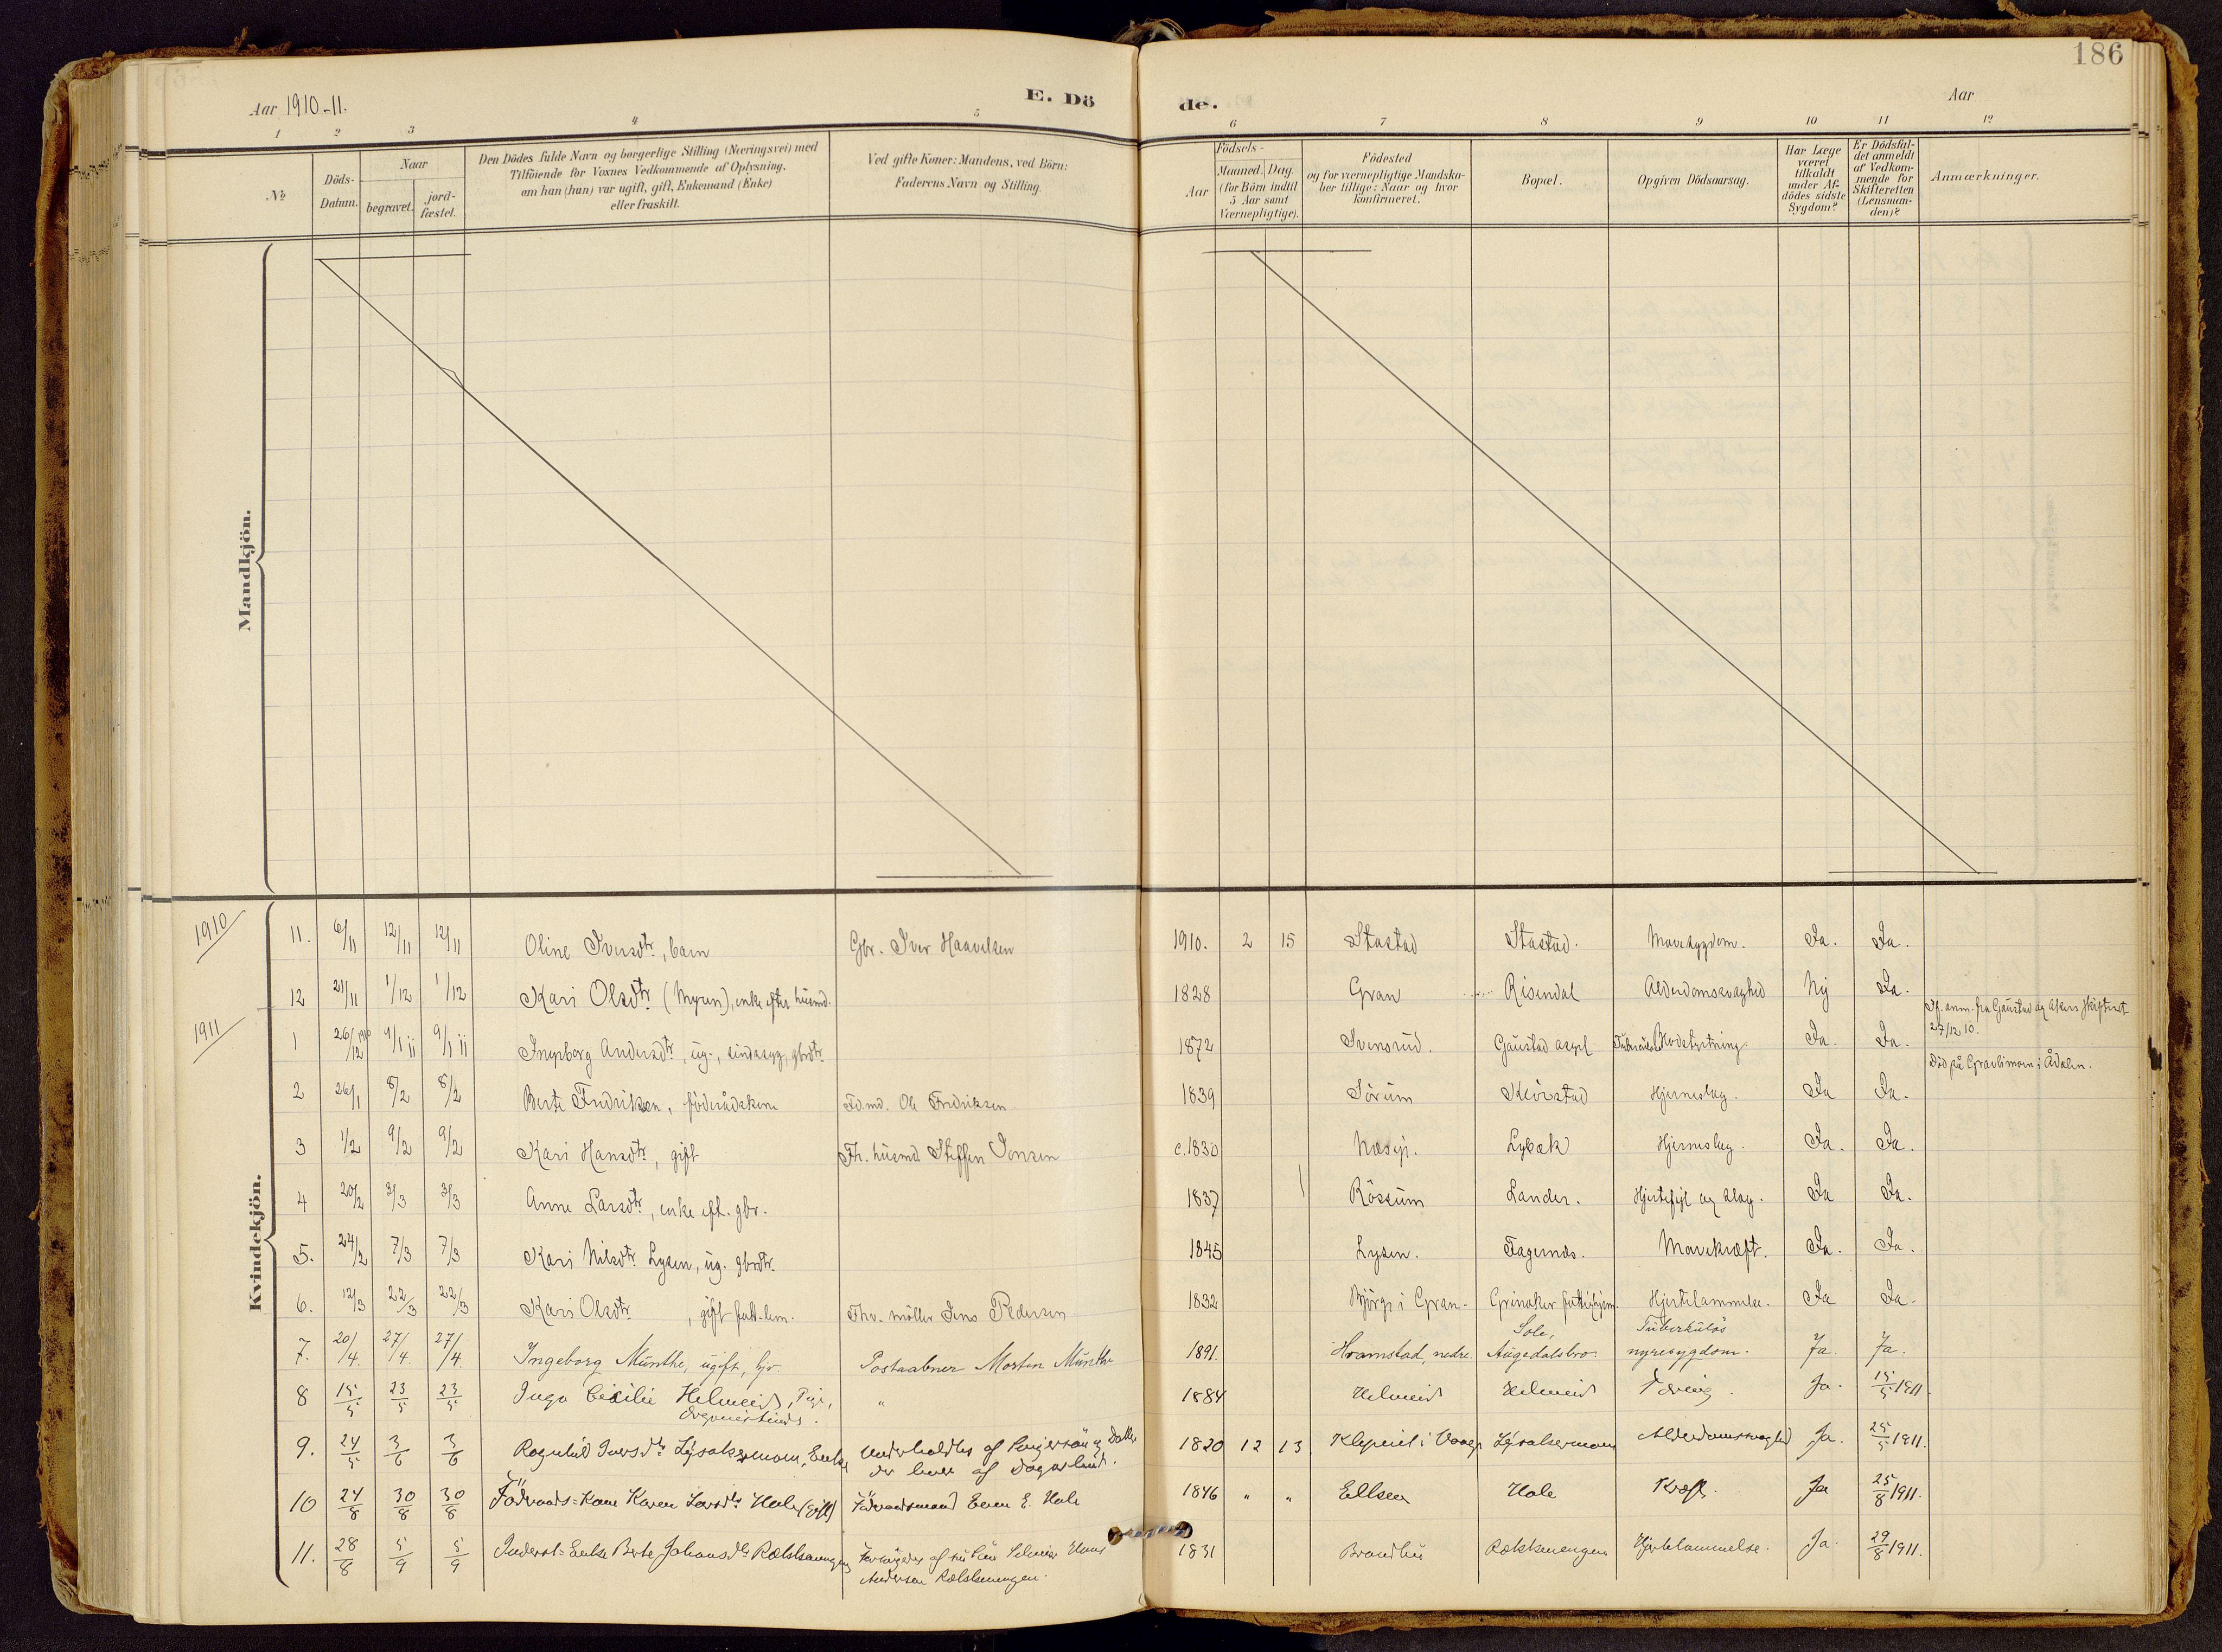 186
Aar 1910-11.
E. Dö
de.
Aar
1 2 3 4 5 6 7 8 9 10 11 12
№
Döds-Datum.
Naar
begravet.
jord-fæstet.
Den Dödes fulde Navn og borgerlige Stilling (Næringsvei) med
Tilföiende for Voxnes Vedkommende af Oplysning,
om han (hun) var ugift, gift, Enkemand (Enke)
eller fraskilt.
Ved gifte Koner: Mandens, ved Börn:
Faderens Navn og Stilling.
Födsels-
Aar
Maaned. Dag.
(for Börn indtil
5 Aar samt
Værnepligtige).
Födested
og for værnepligtige Mandska-
ber tillige: Naar og hvor
konfirmeret.
Bopæl.
Opgiven Dödsaarsag.
Har Læge
været
tilkaldt
under Af-
dödes sidste
Sygdom?
Er Dödsfal-
det anmeldt
af Vedkom-
mende for
Skifteretten
(Lensman-
den)?
Anmærkninger.
Mandkjön.
Kvindekjön.
1910
11. 6/11 12/11 12/11 Oline Iversdtr, barn Gbr. Iver Haavelsen 1910. 2 15 Stastad Stastad. Mavesygdom. Ja. Ja.
12 21/11 1/12 1/12 Kari Olsdtr (Myren), enke efter husmd. 1828 Gran Risendal Alderdomssvaghed Nej Ja.
1911
Df. anm. fra Gaustad og Akers skifteret
27/12 10.
1 26/12 1910 9/1 11 9/1 11 Ingeborg Andersdtr, ug., sindssyg, gbrdtr. 1872 Ivensrud. Gaustad asyl Blodstyrtning. Ja. Ja.
Död på Gravlimoen i Ådalen.
2 26/1 8/2 8/2 Berte Fredriksen, föderådskone Fdmd. Ole Fredriksen 1839 Sörum Kjörstad Hjerneslag. Ja Ja.
3 1/2 9/2 9/2 Kari Hansdtr, gift Fh. husmd. Steffen Jonsen c.1830 Næsyi. Lybæk Hjerneslag. Ja. Ja.
4 20/2 3/3 3/3 Anne Larsdtr, enke eft. gbr. 1837 Rössum Lander. Hjertefejl og slag. Ja Ja.
5. 24/2 7/3 7/3 Kari Nilsdtr Lysen, ug. gbrdtr. 1845 Lysen. Fagernæs. Mavekræft. Ja. Ja.
6. 12/3 22/3 22/3 Kari Olsdtr, gift fatt.lem. Fhv. möller Jens Pedersen 1832 Bjørge i Gran. Grinaker fattighjem. Hjertelammelse. Ja Ja.
Sole, Tuberkuløs
7. 20/4. 27/4. 27/4. Ingeborg Münthe, ugift, hjv. Postaabner Morten Münthe 1891. Hvamstad, nedre. Augedalsbro. nyresygdom. Ja. Ja.
8 15/5 23/5 23/5 Inga Cicilie Helmeid, Pige, " 1884 Helmeid Helmeid Tæring. Ja. 15/5 1911.
9. 24/5 3/6 3/6 Ragnhild Iversdtr Lysakermoen, Enke Underholdtes af Svigersön og Datter 1820 12 13 Klepeiet i Vaage Lysakermoen Alderdomssvaghed Ja. 25/5 1911.
der lever af Dagarbeid.
10 24/8 30/8 30/8 Föderaads-Kone Karen Larsdtr Hole (gift) Föderaadsmand Even E. Hole 1846 " " Ellsen Hole Kræft. Ja 25/8 1911.
11. 28/8 5/9 5/9 Inderst-Enke Berte Johansdtr Rækkenengen Forsörgedes af sin Sön Hans 1831 Brandbu Rækkenengen Hjertelammelse. Ja. 29/8 1911.
Andersen Rækkenengen.